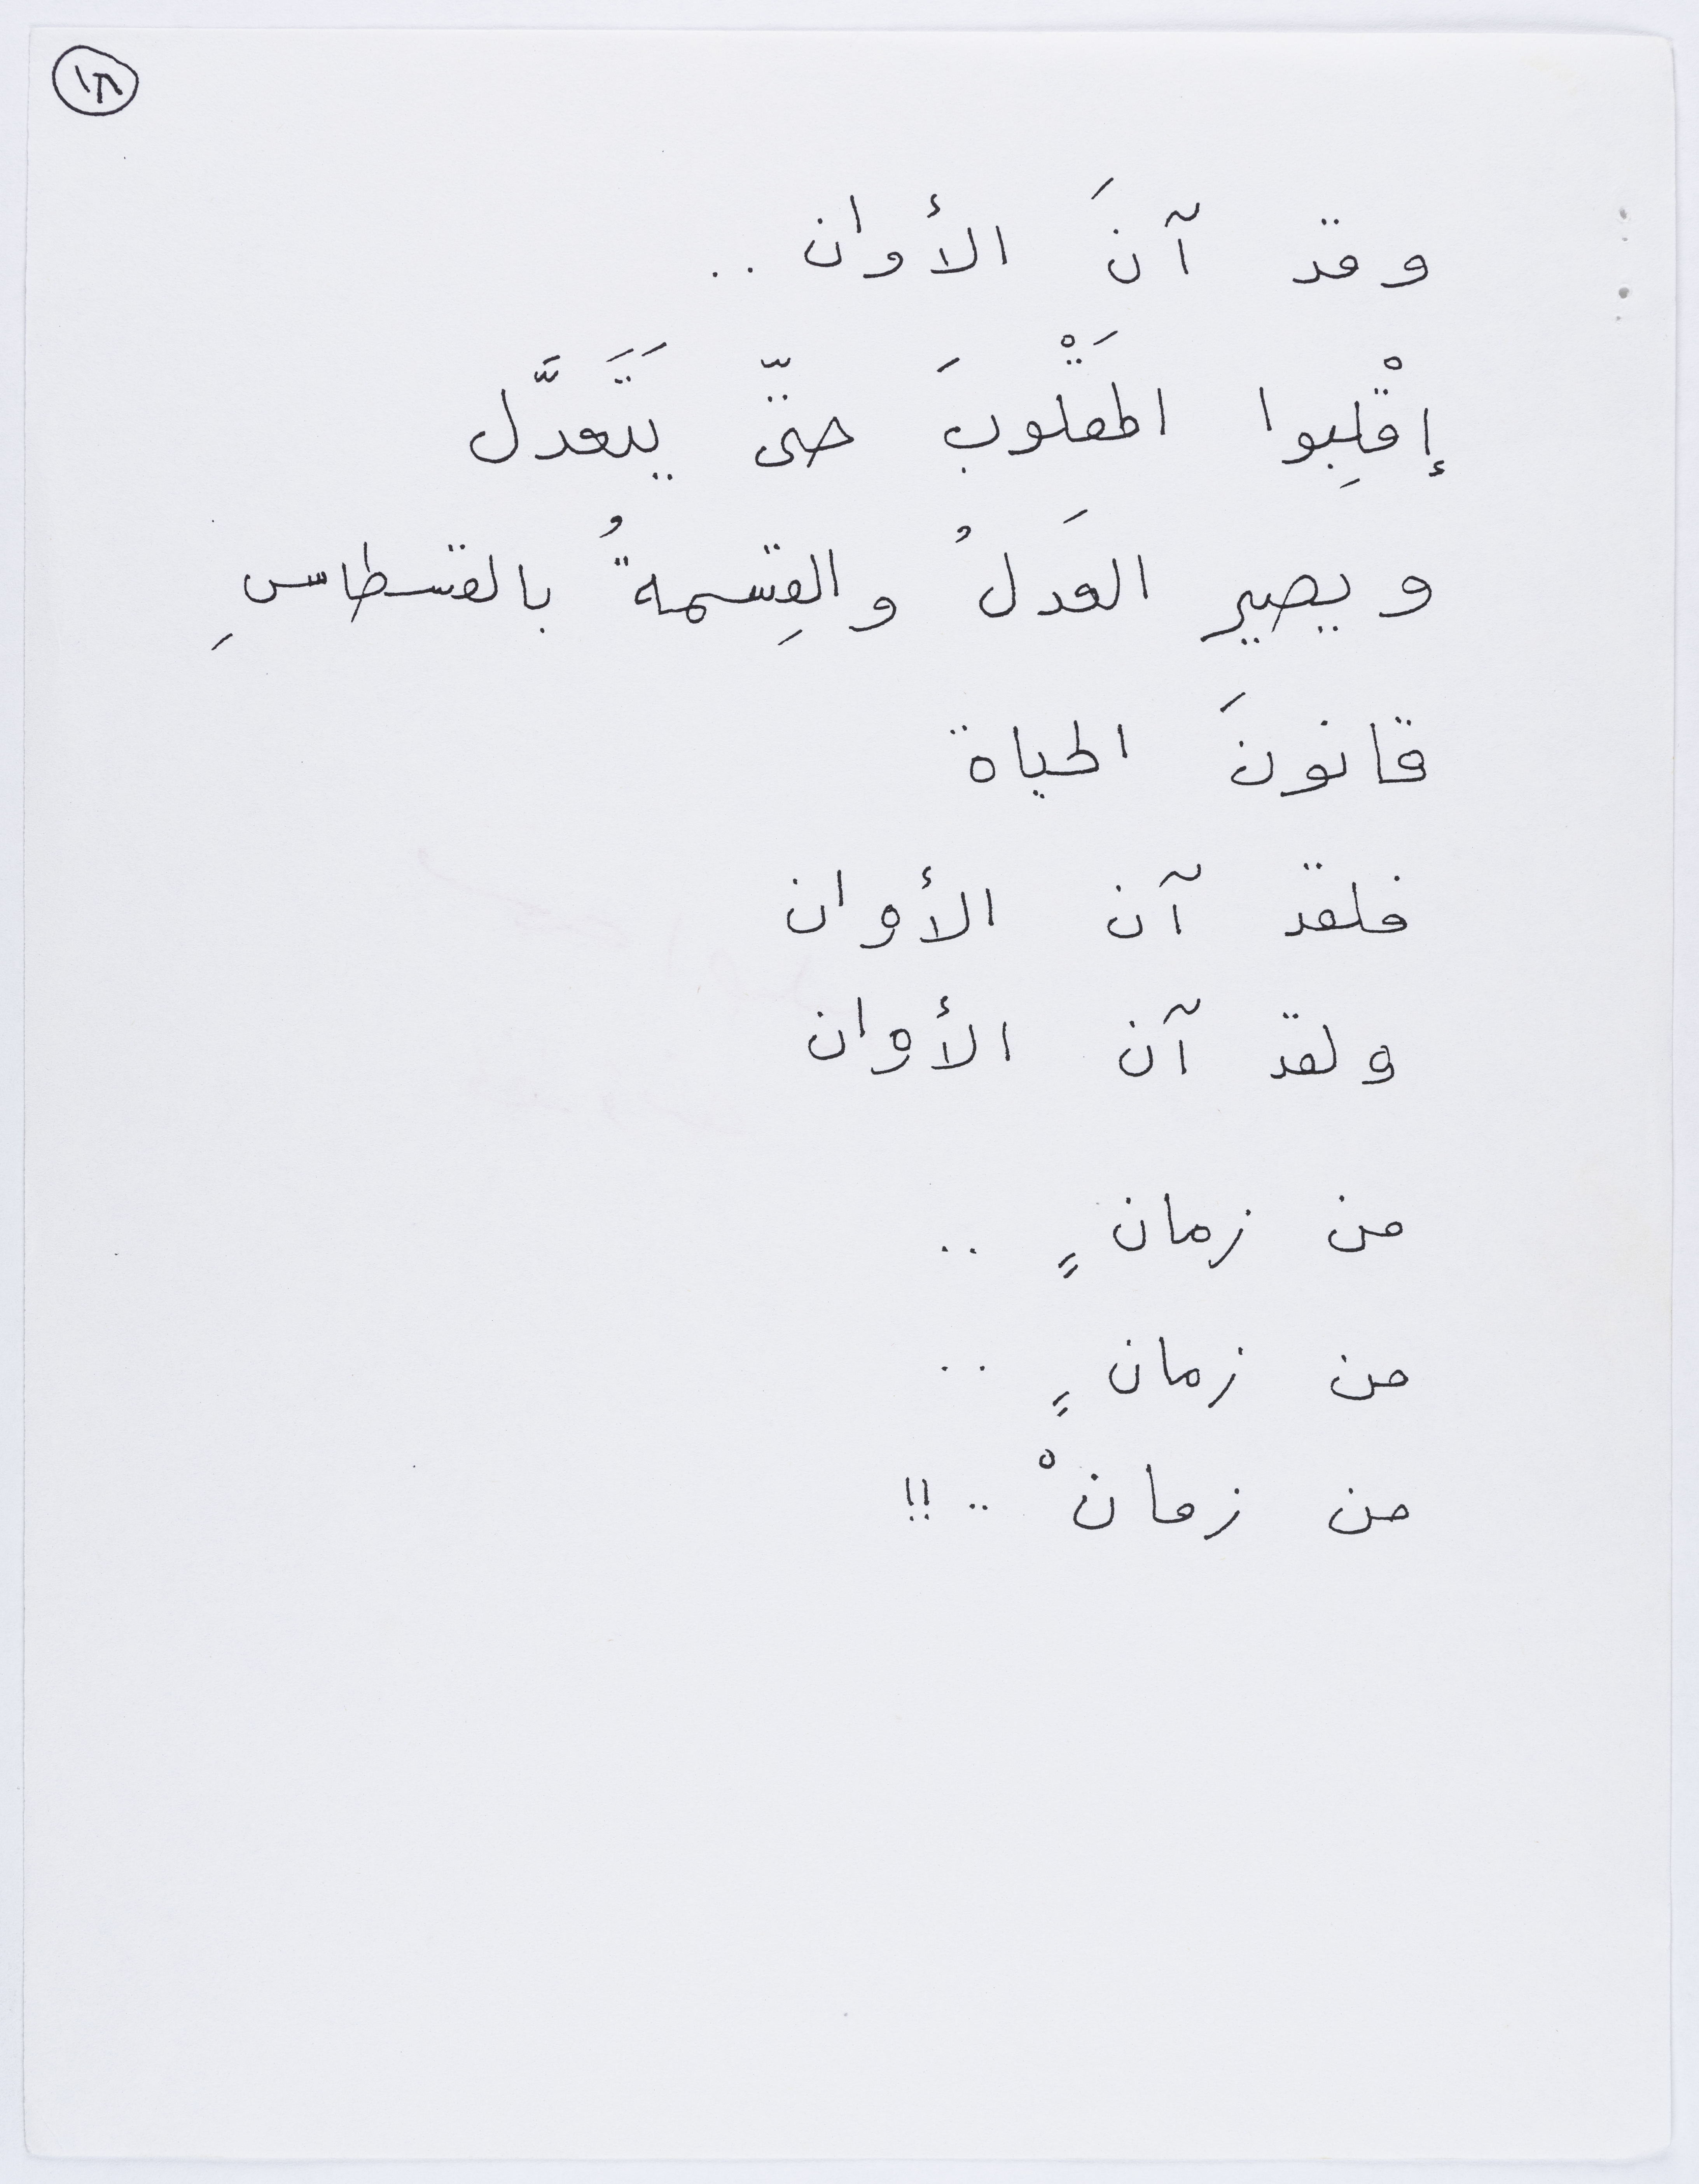 ١٣
وقد آنَ الأوان ..
إقْلِبوا المَقْلوبَ حتّى يَتَعدَّل
ويصير العَدلُ والقِسمةُ بالقسطاسِ
قانونَ الحياة
فلقد آن الأوان
ولقد آن الأوان
من زمانٍ ..
من زمانٍ ..
من زمانْ .. !!